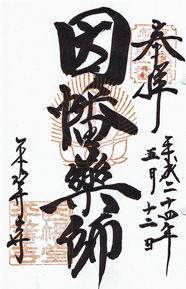 奉拝
平成二十四年
五月十二日
因幡薬師
平等寺